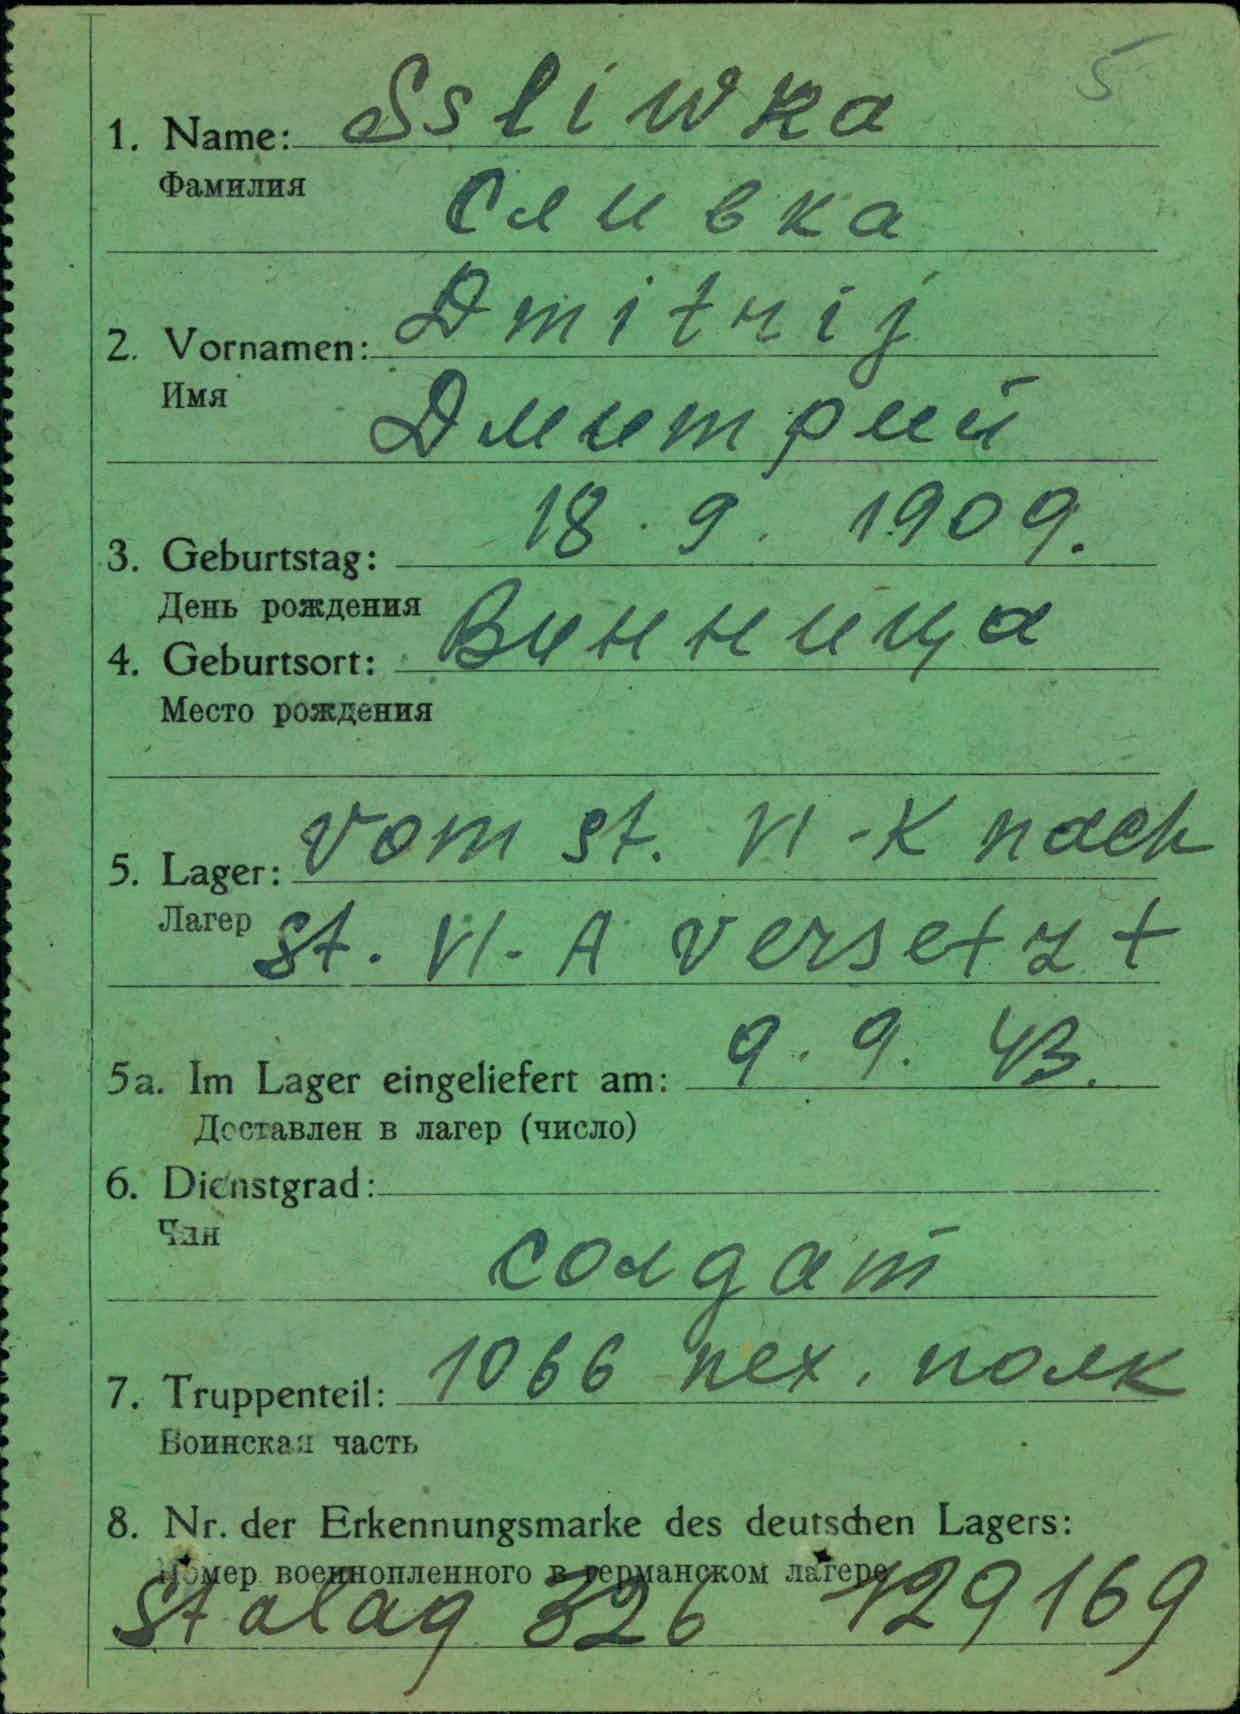 5
1. Name: Ssliwka
Фамилия
Сливка
2. Vornamen: Dmitrij
Имя
Дмитрий
3. Geburtstag: 18. 9. 1909.
День рождения
4. Geburtsort: Винница
Место рождения
5. Lager: Vom St. VI-K nach
Лагер St. VI-A versetzt
5a. Im Lager eingeliefert am: 9. 9. 43.
Доставлен в лагер (число)
6. Dienstgrad:
Чин
солдат
7. Truppenteil: 1066 пех. полк
Воинская часть
8. Nr. der Erkennungsmarke des deutschen Lagers:
Номер военнопленного в германском лагере
Stalag 326 129169